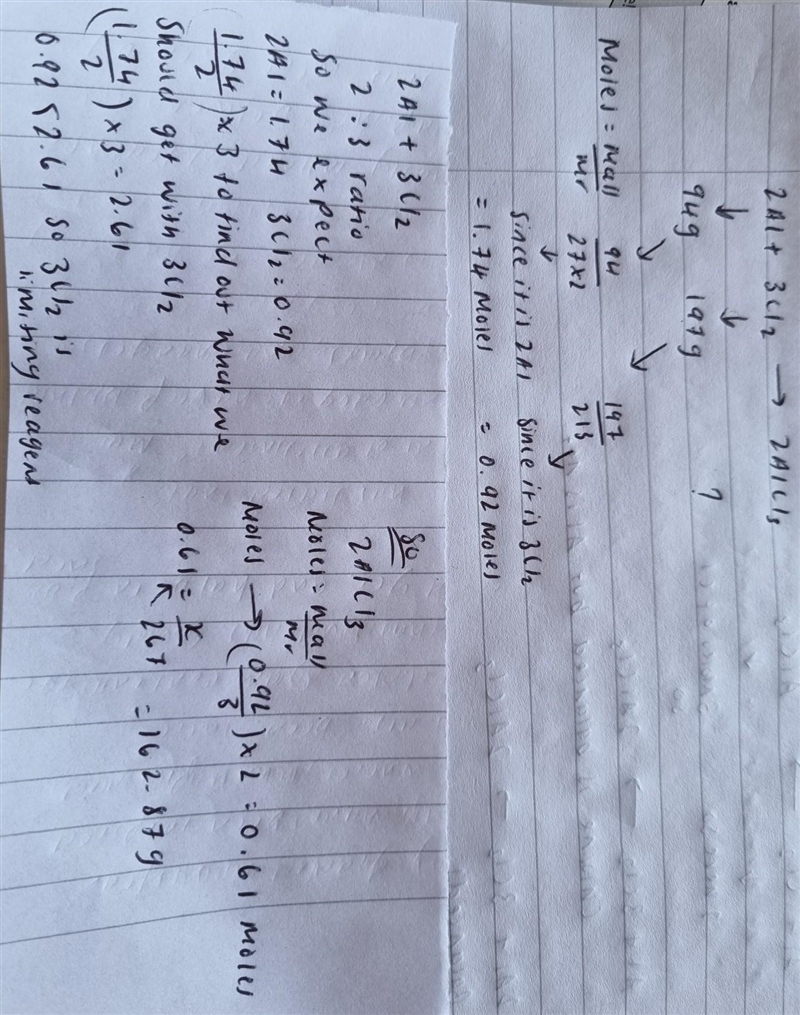 2Al + 3Cl2 → 2AlCl3
↓ ↓
94g 197g ?
Moles = mass/Mr 94/27x2 197/213
Since it is 2Al Since it is 3Cl2
= 1.74 Moles = 0.92 Moles
2Al + 3Cl2
2 : 3 ratio
So we expect
2Al = 1.74 3Cl2 = 0.92
(1.74/2) x 3 to find out what we
Should get with 3Cl2
(1.74/2) x 3 = 2.61
0.92 < 2.61 so 3Cl2 is
limiting reagent
So
2AlCl3
Moles = mass/Mr
Moles → (0.92/3) x 2 = 0.61 moles
0.61 = x/267 = 162.87g